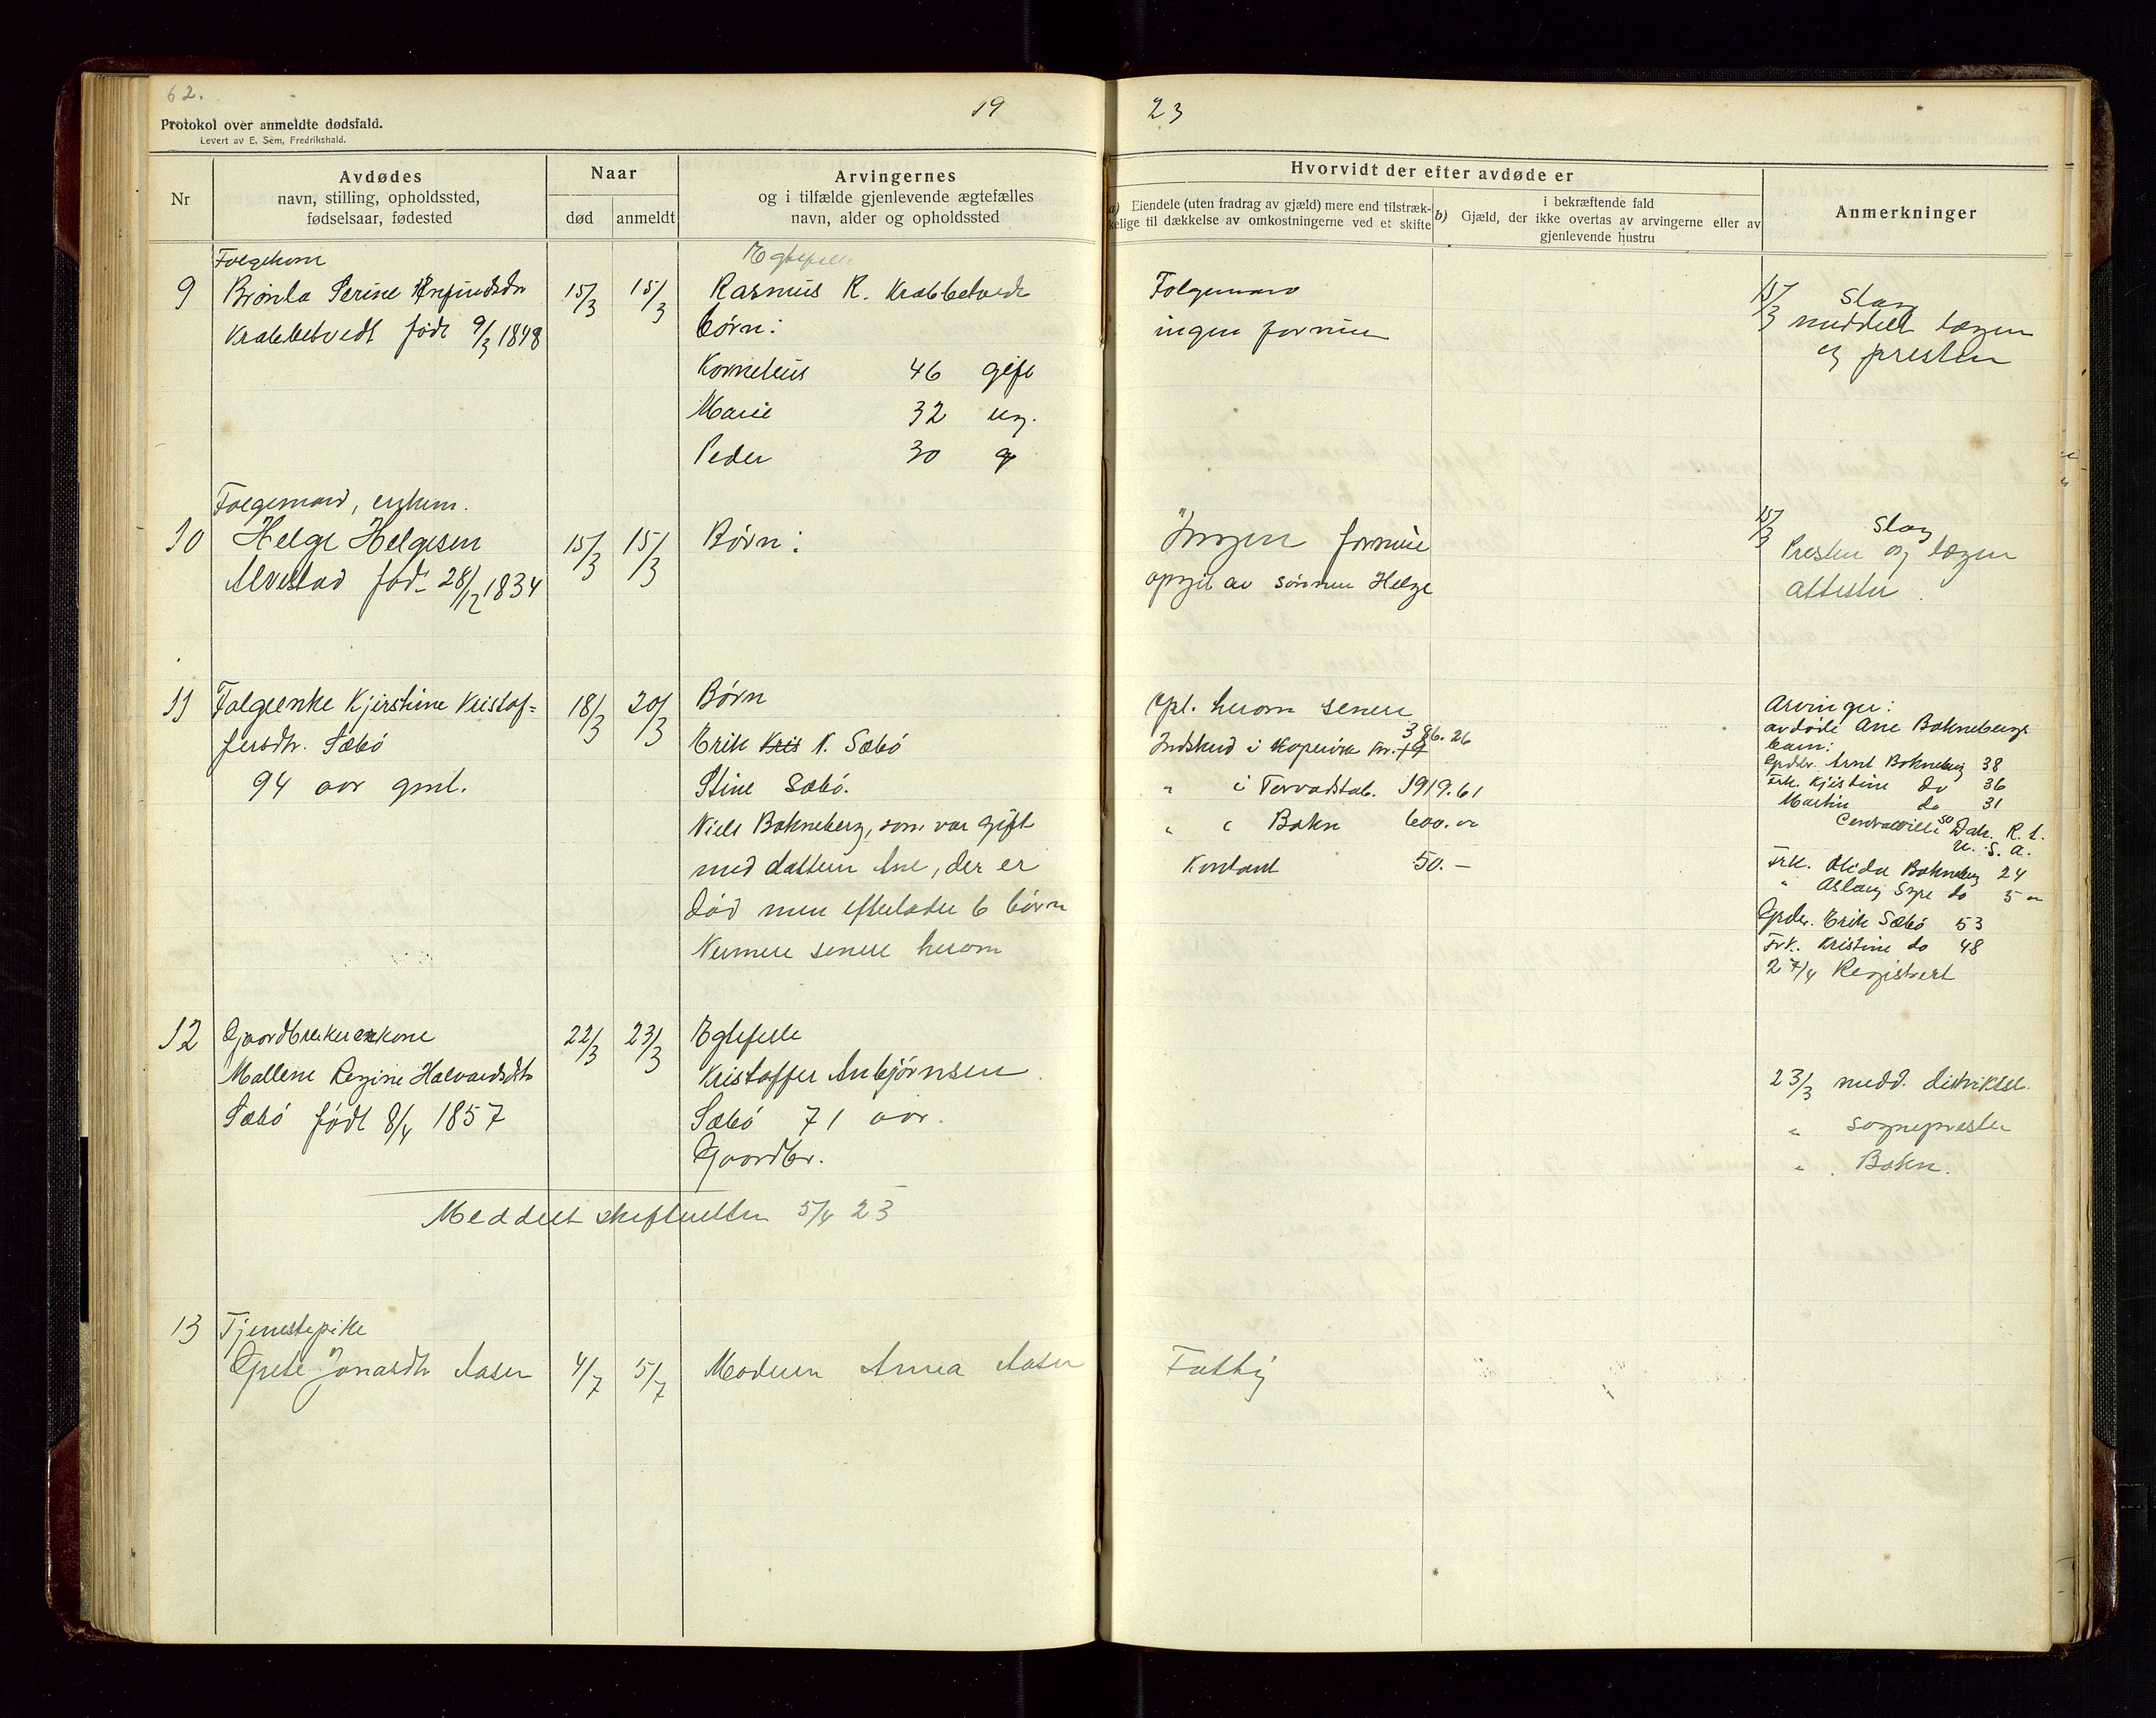 62.
19
23
Protokol over anmeldte dødsfald.
Levert av E. Sem, Fredrikshald.
Nr
Avdødes
navn, stilling, opholdssted,
fødselsaar, fødested
Naar
død
anmeldt
Arvingernes
og i tilfælde gjenlevende ægtefælles
navn, alder og opholdssted
Hvorvidt der efter avdøde er
a) Eiendele (uten fradrag av gjæld) mere end tilstræk-
kelige til dækkelse av omkostningerne ved et skifte
i bekræftende fald
b) Gjæld, der ikke overtas av arvingerne eller av
gjenlevende hustru
Anmerkninger
Folgekone
9 Serine
Krabbetvedt født 9/3 1848
15/3 15/3
Egtefelle
Rasmus R. Krabbetvedt
børn:
Kornelius 46 gift
Marie 32 ug.
Peder 30 g
Folgemand
ingen formue
15/3 Slag
meddelt lægen
og presten
Folgemand, enkem.
10 Helge Helgesen
Alvestad fød. 28/12 1834
15/3 15/3
Børn:
Ingen formue
opgit av sønnen Helge
15/3 Slag
Presten og lægen
attester.
11 Folgeenke Kjirstine Kristof=
fersdtr. Sæbø
94 aar gml.
18/3 20/3
Børn
Erik Kris N. Sæbø
Stine Sæbø.
Niels Bokneberg, som var gift
med datteren Ane, der er
død men efterlater 6 børn
Nermere senere herom
Opl. herom senere
Indskud i Kopervik kr. 19 386.26
" i Torvastad. 1919.61
" i Bokn 600.00
Kontant 50.-
Arvinger:
avdøde Ane Boknebergs
barn:
Grdbr. Arnt Bokneberg 38
Frk. Kjistine do 36
Martin do 31
Centraville 50 Dak. R. 1.
U. S. A.
Frk. Olida Bokneberg 24
" Aslaug do
Grdbr. Erik Sæbø 53
Frk. Kristine do 48
27/4 Registrert
12 Gaardbrukerenkone
Mallene Regine Halvardsdtr
Sæbø født 8/4 1857
22/3 23/3
Egtefelle
Kristoffer Anbjørnsen
Sæbø 71 aar.
Gaardbr.
23/3 medd. distriktsl.
" sogneprester
" Bokn.
Meddelt skifteretten 5/4 23
13 Tjenestepike
Jonasdtr Aasen
4/7 5/7
Moderen Anna Aasen
Fattig